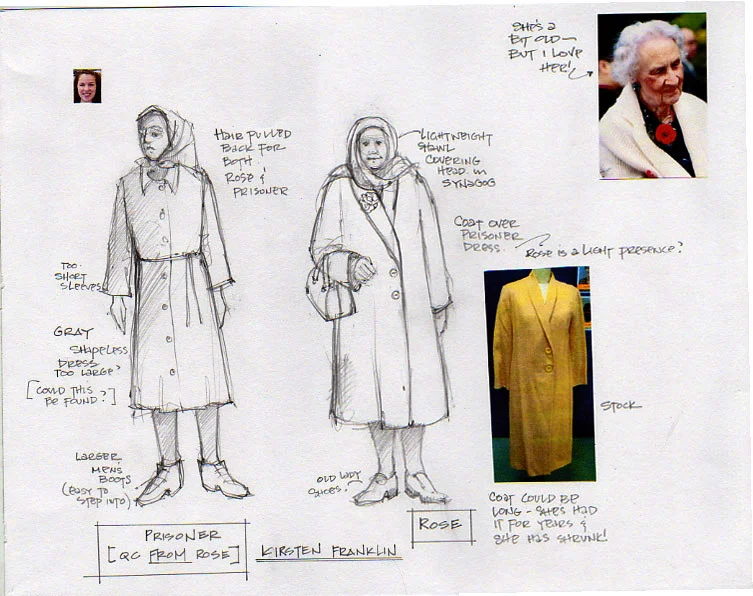 SHE'S A
BIT OLD –
BUT I LOVE
HER!
HAIR PULLED
BACK FOR
BOTH
ROSE &
PRISONER
LIGHTWEIGHT
SHAWL
COVERING
HEAD IN
SYNAGOG
COAT OVER
PRISONER
DRESS.
ROSE IS A LIGHT PRESENCE?
TOO
SHORT
SLEEVES
GRAY
SHAPELESS
DRESS
TOO LARGE?
[COULD THIS
BE FOUND?]
LARGER
MEN'S
BOOTS
(EASY TO
STEP INTO)
OLD LADY
SHOES.
STOCK
COAT COULD BE
LONG - SHE'S HAD
IT FOR YEARS &
SHE HAS SHRUNK!
PRISONER
[QC FROM ROSE]
KIRSTEN FRANKLIN
ROSE